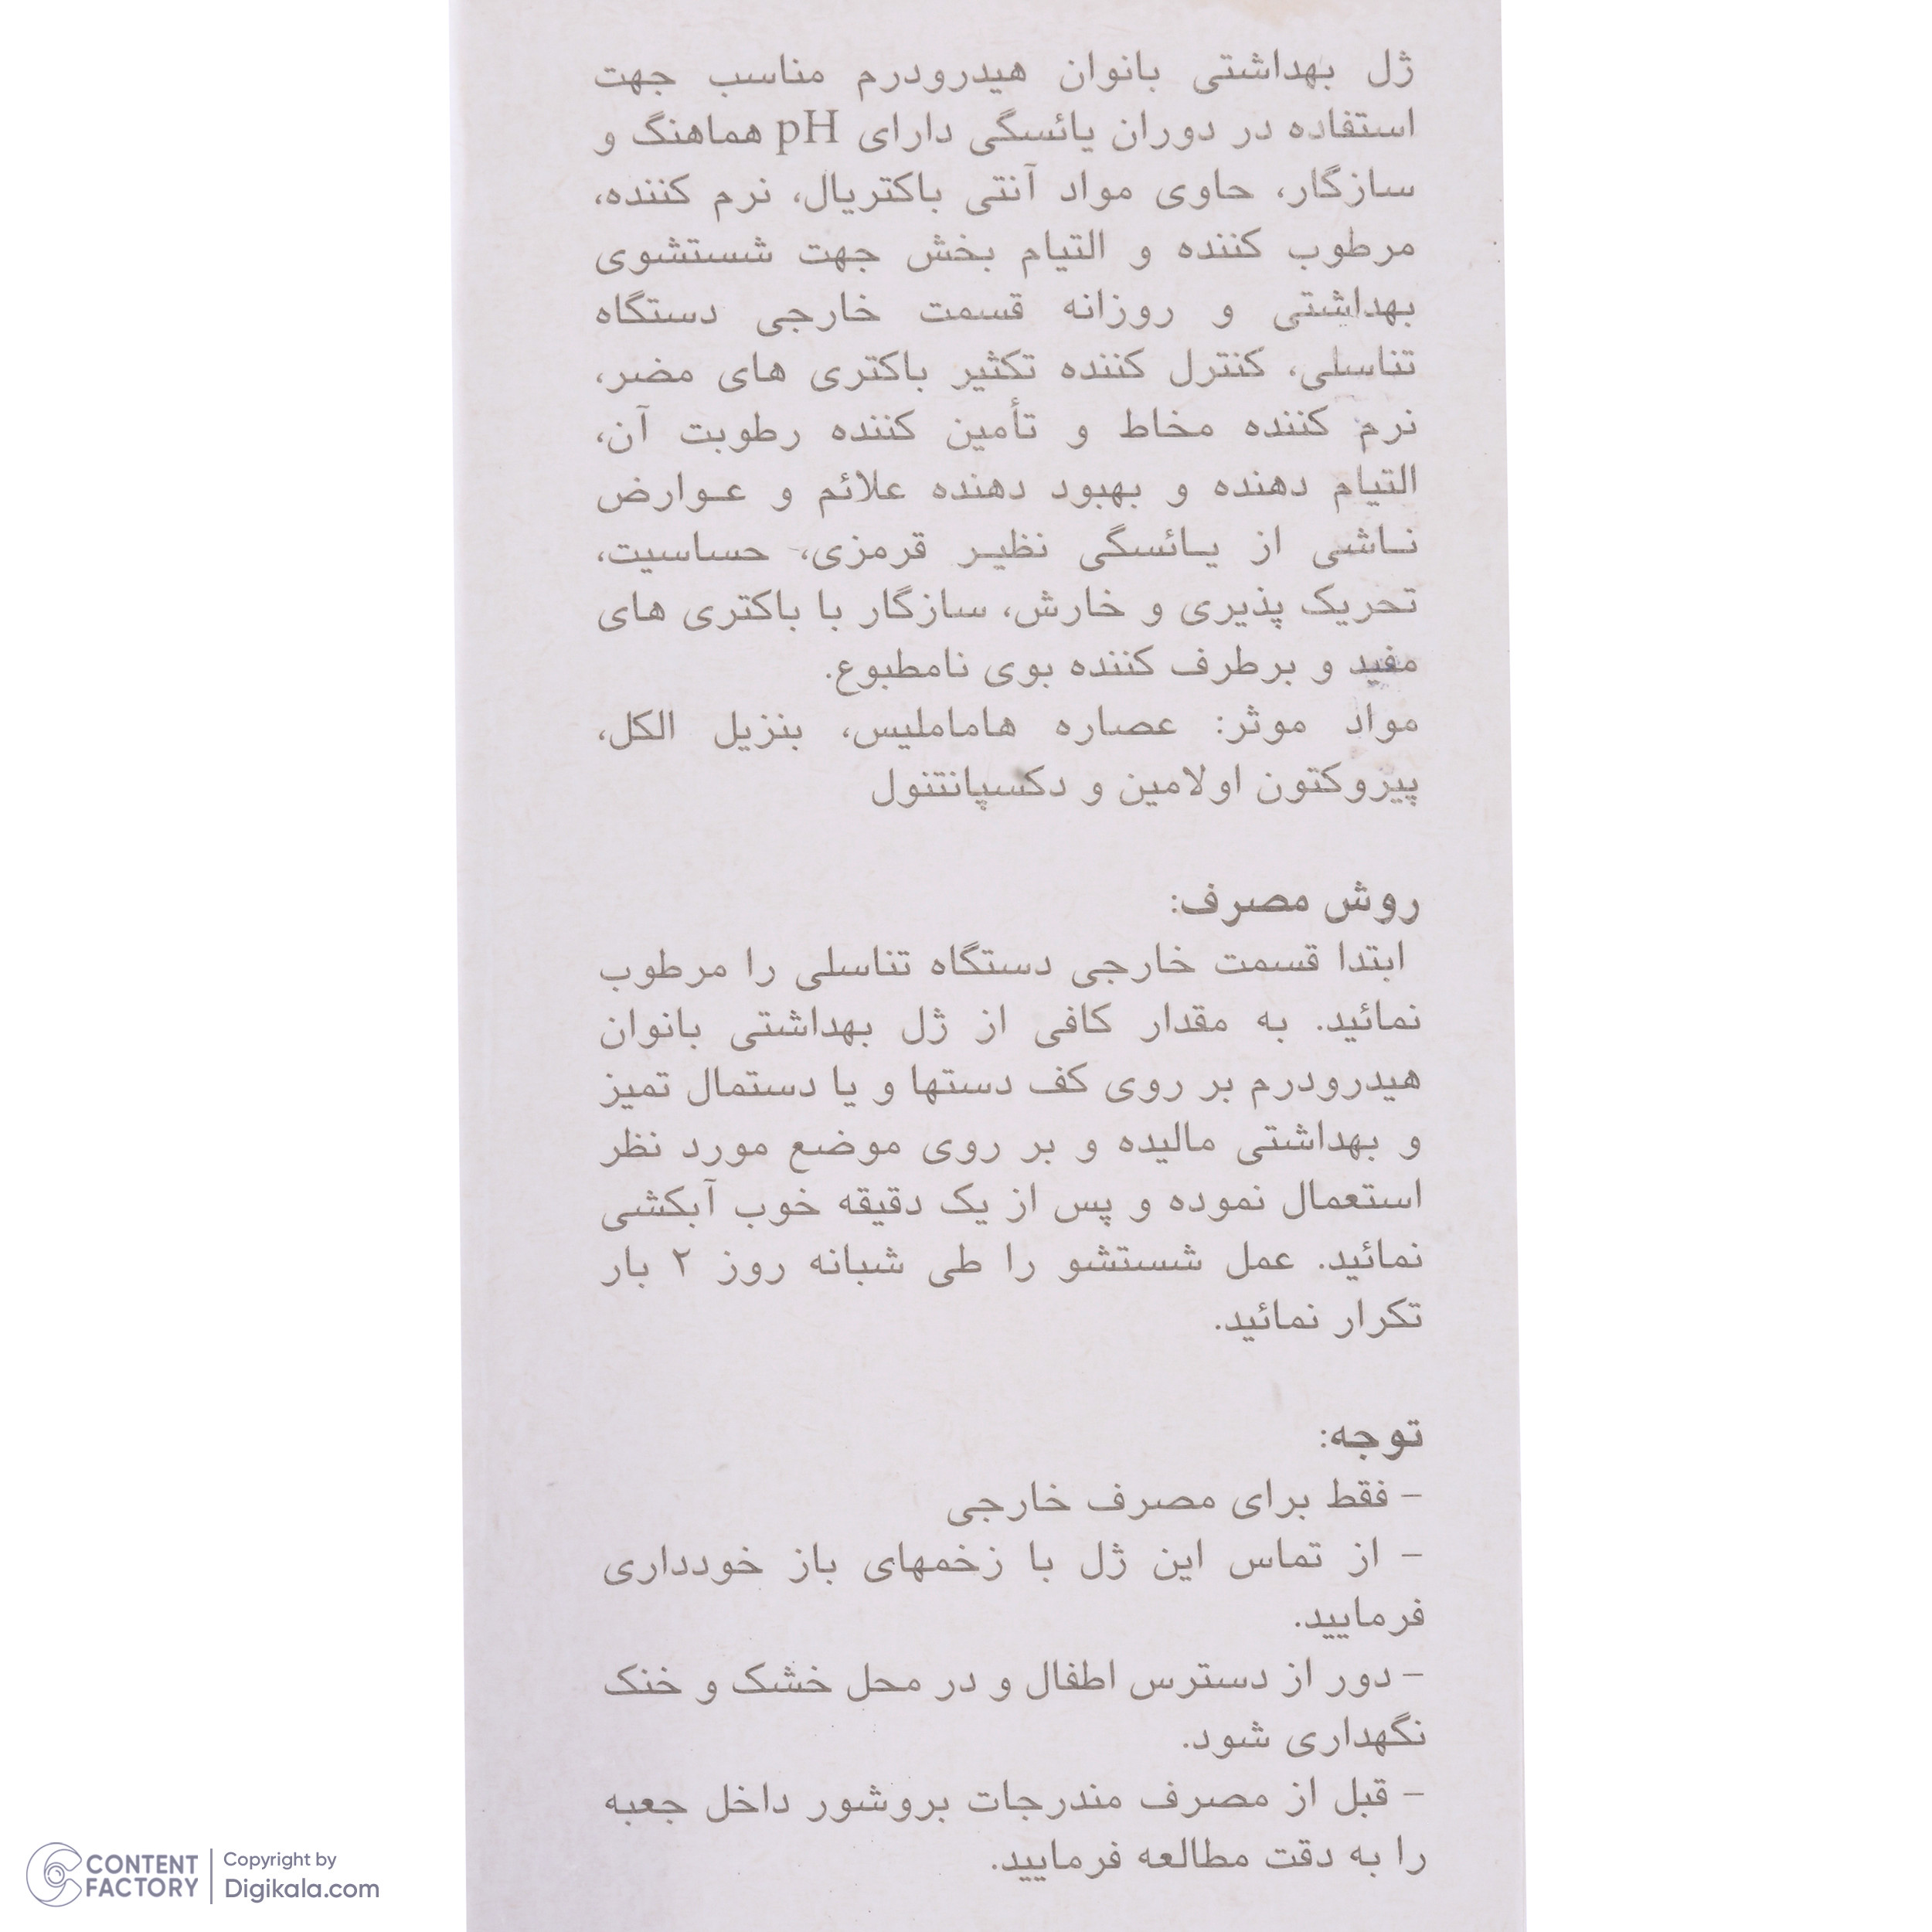 ژل بهداشتی بانوان هیدرودرم مناسب جهت
استفاده در دوران یائسگی دارای pH هماهنگ و
سازگار، حاوی مواد آنتی باکتریال، نرم کننده،
مرطوب کننده و التیام بخش جهت شستشوی
بهداشتی و روزانه قسمت خارجی دستگاه
تناسلی، کنترل کننده تکثیر باکتری های مضر،
نرم کننده مخاط و تأمین کننده رطوبت آن،
التیام دهنده و بهبود دهنده علائم و عـوارض
نـاشی از یـائسگی نظیـر قرمزی، حساسیت،
تحریک پذیری و خارش، سازگار با باکتری های
مفید و برطرف کننده بوی نامطبوع.
مواد موثر: عصاره هاماملیس، بنزیل الکل،
پیروکتون اولامین و دکسپانتنول
روش مصرف:
ابتدا قسمت خارجی دستگاه تناسلی را مرطوب
نمائید. به مقدار کافی از ژل بهداشتی بانوان
هیدرودرم بر روی کف دستها و یا دستمال تمیز
و بهداشتی مالیده و بر روی موضع مورد نظر
استعمال نموده و پس از یک دقیقه خوب آبکشی
نمائید. عمل شستشو را طی شبانه روز ۲ بار
تکرار نمائید.
توجه:
- فقط برای مصرف خارجی
- از تماس این ژل با زخمهای باز خودداری
فرمایید.
- دور از دسترس اطفال و در محل خشک و خنک
نگهداری شود.
- قبل از مصرف مندرجات بروشور داخل جعبه
را به دقت مطالعه فرمایید.
CONTENT FACTORY
Copyright by
Digikala.com